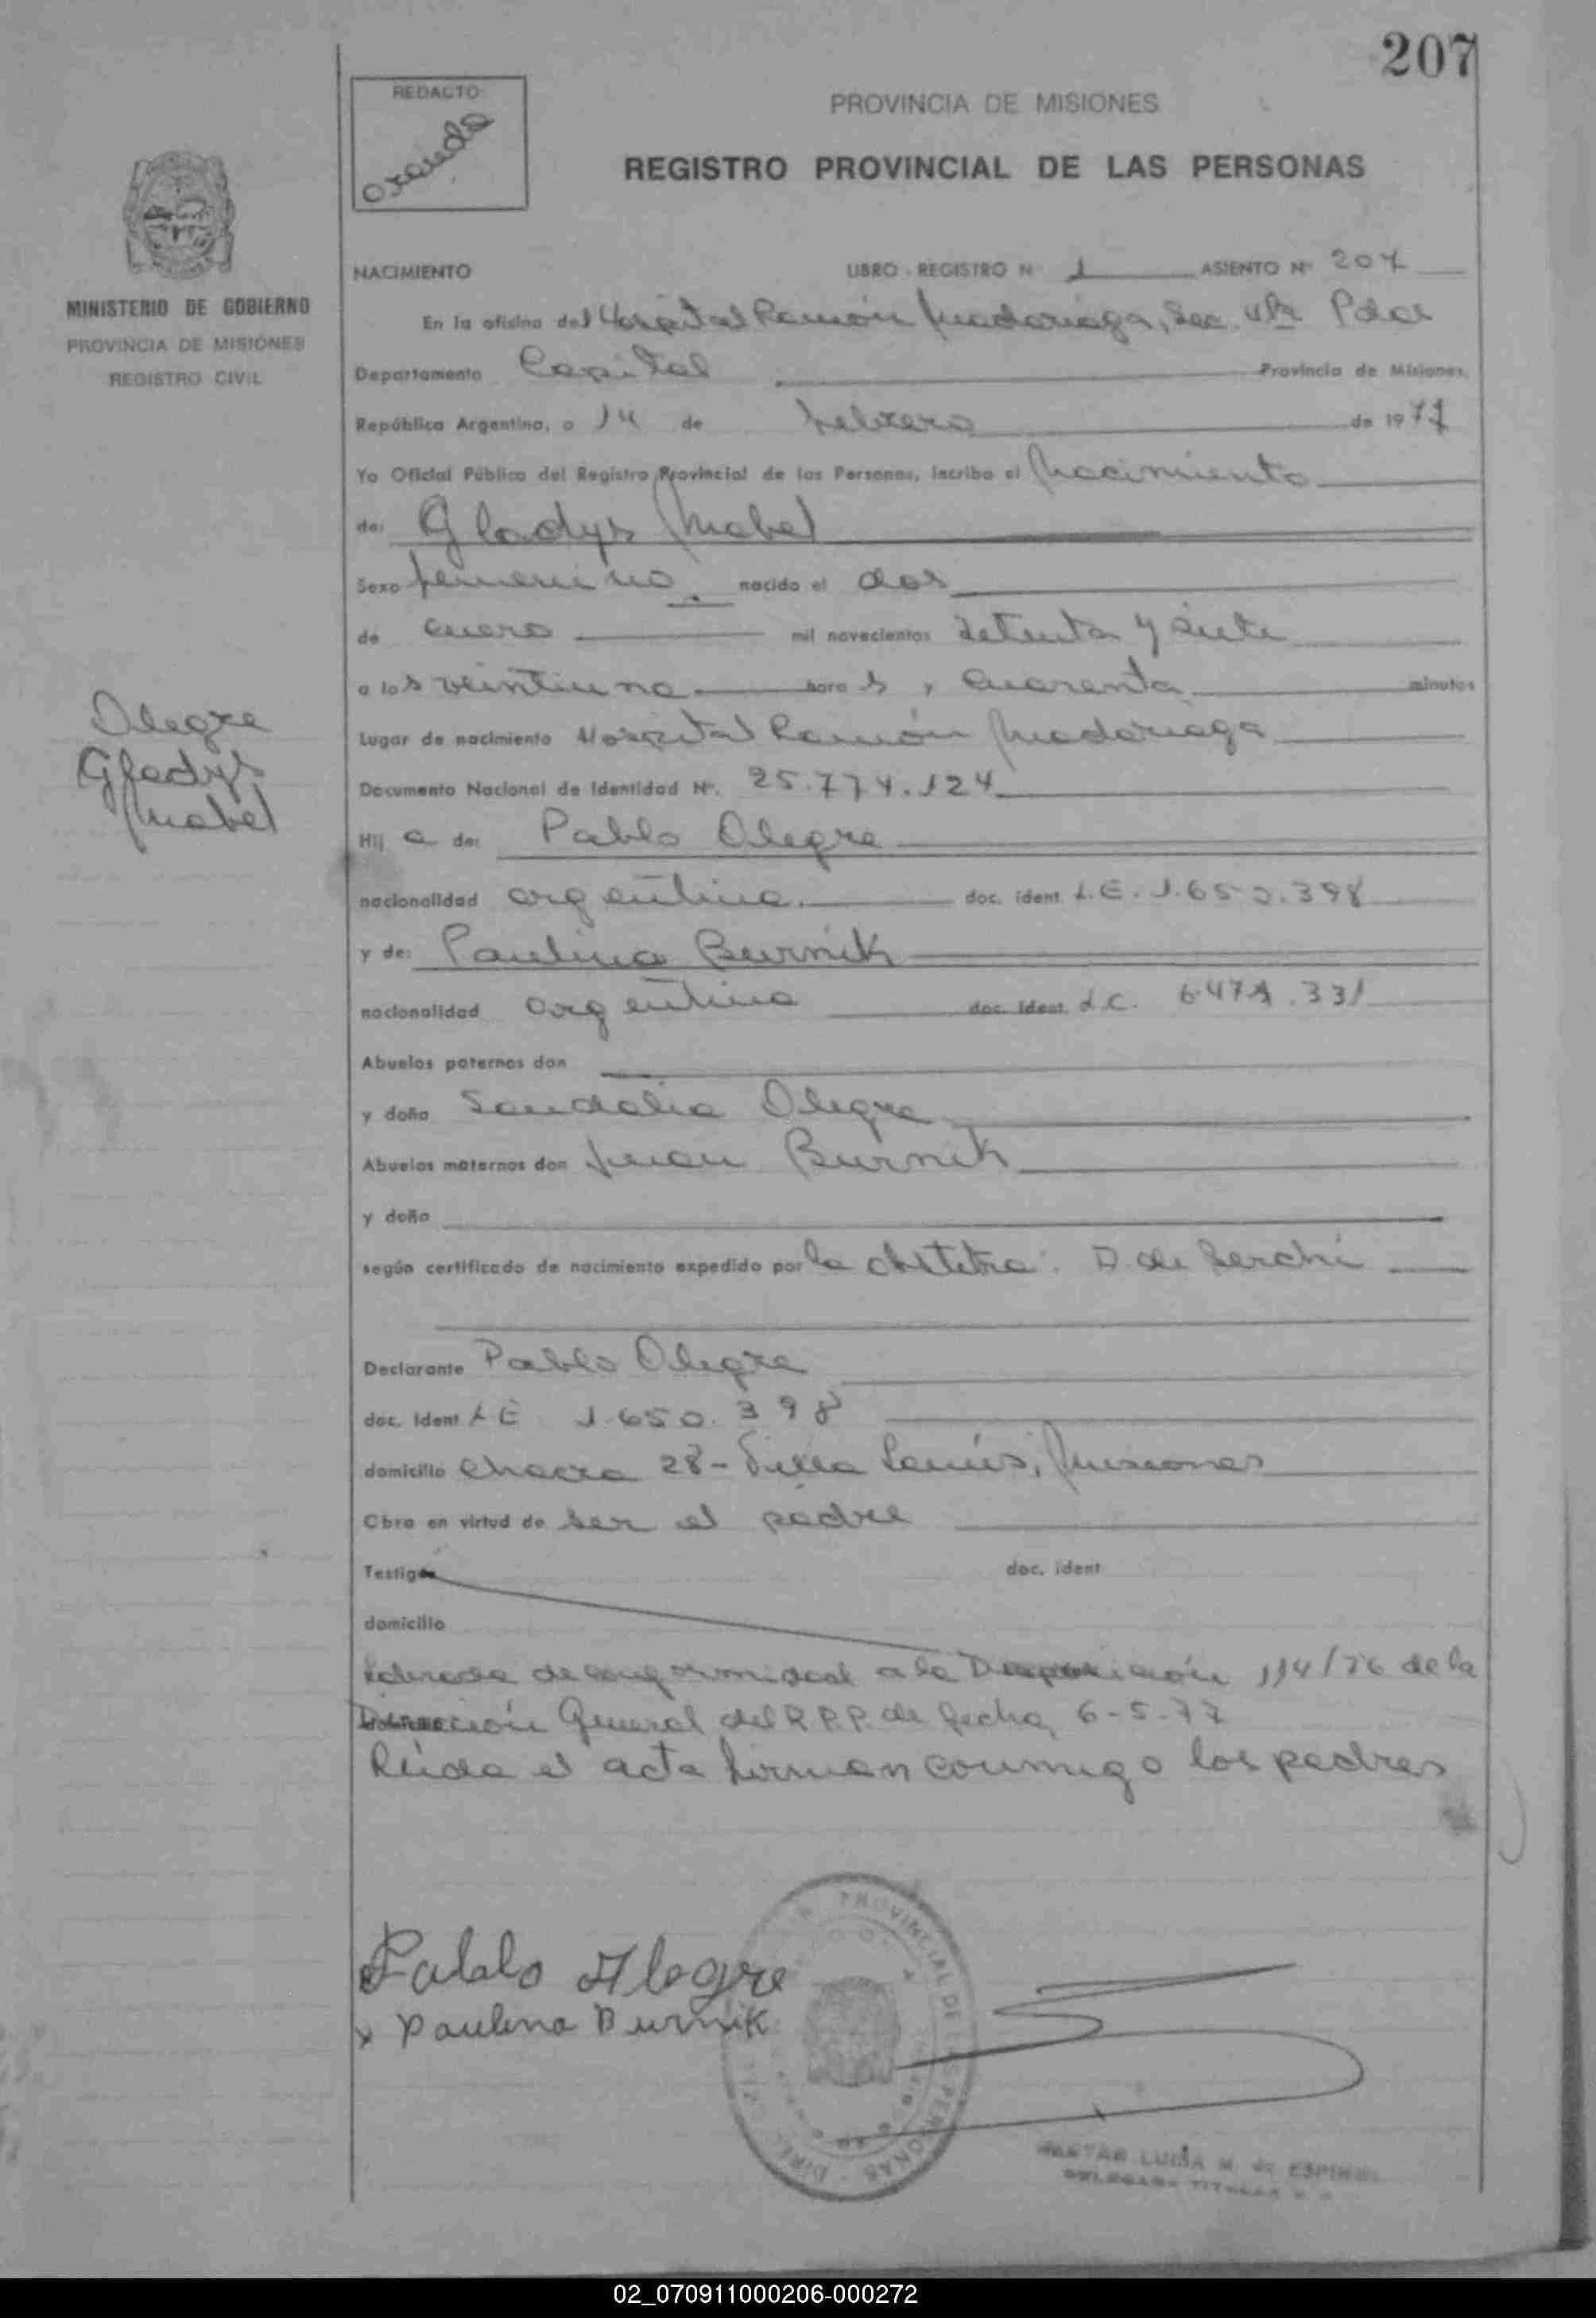 207
REDACTO:
PROVINCIA DE MISIONES
REGISTRO PROVINCIAL DE LAS PERSONAS
MINISTERIO DE GOBIERNO
PROVINCIA DE MISIONES
REGISTRO CIVIL
NACIMIENTO LIBRO - REGISTRO N 1 ASIENTO Nº 207
En la oficina del Hospital Ramón Madariaga, Sec. Pdas
Departamento Capital Provincia de Misiones,
República Argentina, a 14 de febrero de 1977
Yo Oficial Público del Registro Provincial de las Personas, inscribo el Nacimiento
de: Gladys Mabel
Sexo femenino nacido el dos
de enero mil novecientos setenta y siete
a las veintiuna horas y cuarenta minutos
Alegre
Gladys
Mabel
Lugar de nacimiento Hospital Ramón Madariaga
Documento Nacional de Identidad Nº. 25.774.124
Hij a de: Pablo Alegre
nacionalidad argentina doc. ident. L.E. 1.650.398
y de: Paulina Burnik
nacionalidad argentina doc. ident. L.C. .331
Abuelos paternos don
y doña Sandalia Alegre
Abuelos maternos don Juan Burnik
y doña
según certificado de nacimiento expedido por la obstetra: D de
Declarante Pablo Alegre
doc. ident LE 1.650.398
domicilio Chacra 28 - Villa Lanús, Misiones
Obra en virtud de ser el padre
Testigos doc. ident
domicilio
de conformidad a la Disposición 114/76 de la
Dirección General del R.P.P. de fecha, 6-5-77
Leída el acta firman conmigo los padres
Pablo Alegre
x Paulina Burnik
PROVINCIAL DE LAS PERSONAS
LUISA M. de ESPINDOLA
DELEGADA TITULAR
02_070911000206-000272